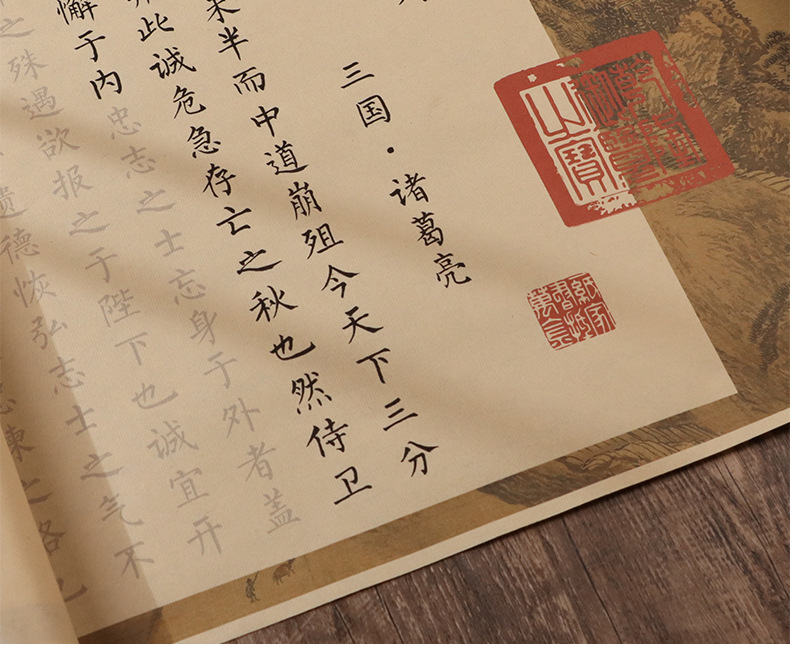 三国·诸葛亮
未半而中道崩殂今天下三分
此诚危急存亡之秋也然侍卫
懈于内忠志之士忘身于外者盖
之殊遇欲报之于陛下也诚宜开
遗德恢弘志士之气不
谏之路也
之寶